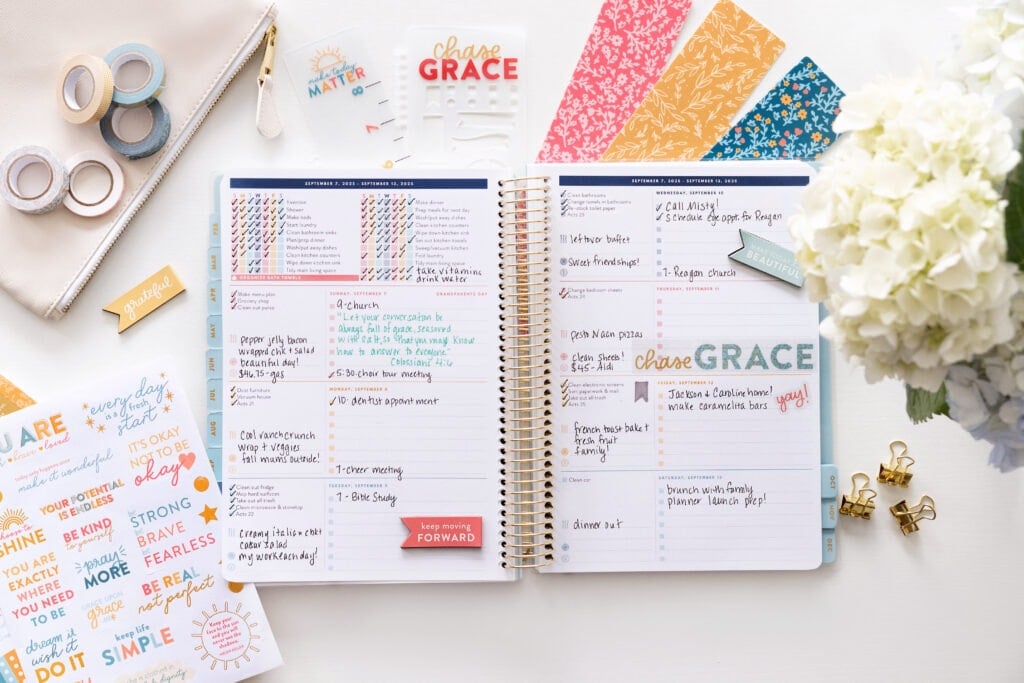 make today
MATTER
8
7
chase
GRACE
SEPTEMBER 7, 2025 - SEPTEMBER 13, 2025
S M T W T F S
S M T W T F S
Exercise
Shower
Make beds
Start laundry
Clean bathroom sinks
Plan/prep dinner
Wash/put away dishes
Clean kitchen counters
Wipe down kitchen sink
Tidy main living space
ORGANIZE BATH TOWELS
Make dinner
Prep meals for next day
Wash/put away dishes
Clean kitchen counters
Wipe down kitchen sink
Set out kitchen towels
Sweep/vacuum kitchen
Fold laundry
Tidy main living space
take vitamins
drink water
Make menu plan
Grocery shop
Clean out purse
pepper jelly bacon
wrapped chk + salad
beautiful day!
$46.75-gas
SUNDAY, SEPTEMBER 7
GRANDPARENTS DAY
9-church
"Let your conversation be
always full of grace, seasoned
with salt, so that you may know
how to answer to everyone."
Colossians 4:6
5:30-choir tour meeting
Dust furniture
Vacuum house
Acts 21
Cool ranch crunch
wrap + veggies
fall mums outside!
MONDAY, SEPTEMBER 8
10-dentist appointment
7-cheer meeting
Clean out fridge
Mop hard surfaces
Take out all trash
Clean microwave & stovetop
Acts 22
creamy italian chkt
caesar salad
my work each day!
TUESDAY, SEPTEMBER 9
7-Bible Study
keep moving
FORWARD
SEPTEMBER 7, 2025 - SEPTEMBER 13, 2025
Clean bathrooms
Change towels in bathrooms
Re-stock toilet paper
Acts 23
leftover buffet
Sweet friendships!
WEDNESDAY, SEPTEMBER 10
Call Misty!
Schedule eye appt. for Reagan
7-Reagan church
BEAUTIFUL
Change bedroom sheets
Acts 24
pesto naan pizzas
clean sheets!
$45-Aldi
THURSDAY, SEPTEMBER 11
chase GRACE
Clean electronic screens
Sort paperwork & mail
Take out all trash
Acts 25
french toast bake +
fresh fruit
family!
FRIDAY, SEPTEMBER 12
Jackson & Caroline home!
make caramelita bars
yay!
Clean car
dinner out
SATURDAY, SEPTEMBER 13
brunch with family
planner launch prep!
FEB
MAR
APR
MAY
JUN
JUL
OCT
NOV
DEC
grateful
YOU ARE
brave + loved
every day
is a fresh
start
today only happens once
make it wonderful
IT'S OKAY
NOT TO BE
okay
YOUR POTENTIAL
IS ENDLESS
BE KIND
to yourself
STRONG
BRAVE
FEARLESS
choose to
SHINE
YOU ARE
EXACTLY
WHERE
YOU NEED
TO BE
pray
MORE
GRACE UPON
grace
BE REAL
not perfect
dream it
wish it
DO IT
keep life
SIMPLE
Keep your
face to the sun
and you will
never see the
shadows.
HELEN KELLER
dignity